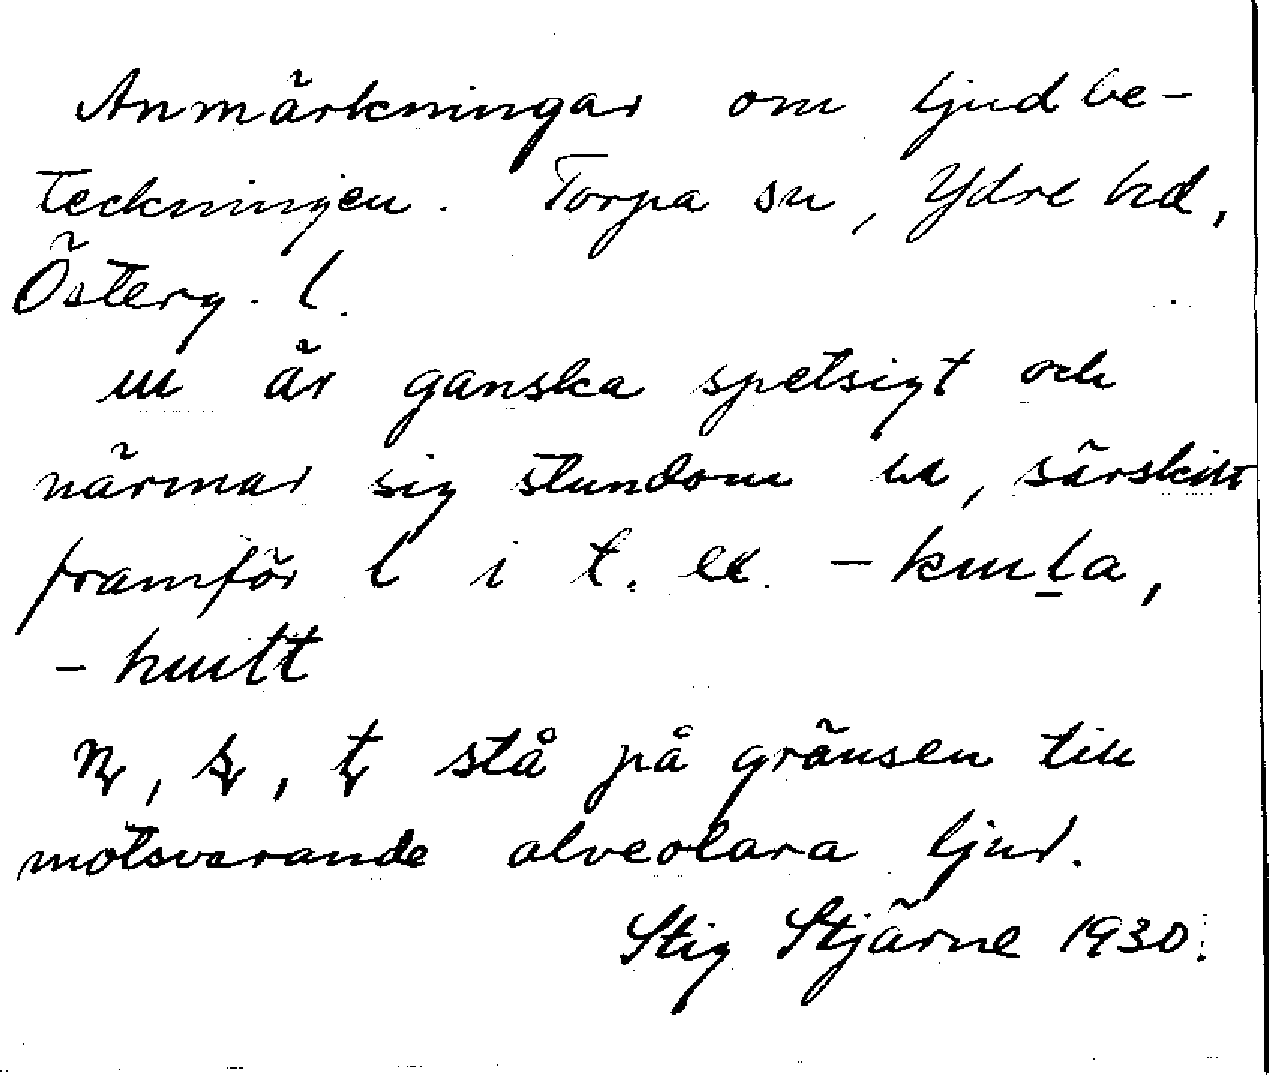 Anmärkningar om ljudbe-
teckningen. Torpa sn, Ydre hd,
Österg. l.
ɯ är ganska spetsigt och
närmar sig stundom ʉ, särskilt
framför l i t. ex. -kɯl̲a,
-hɯltt
stå på gränsen till
motsvarande alveolara ljud.
Stig Stjärne 1930.